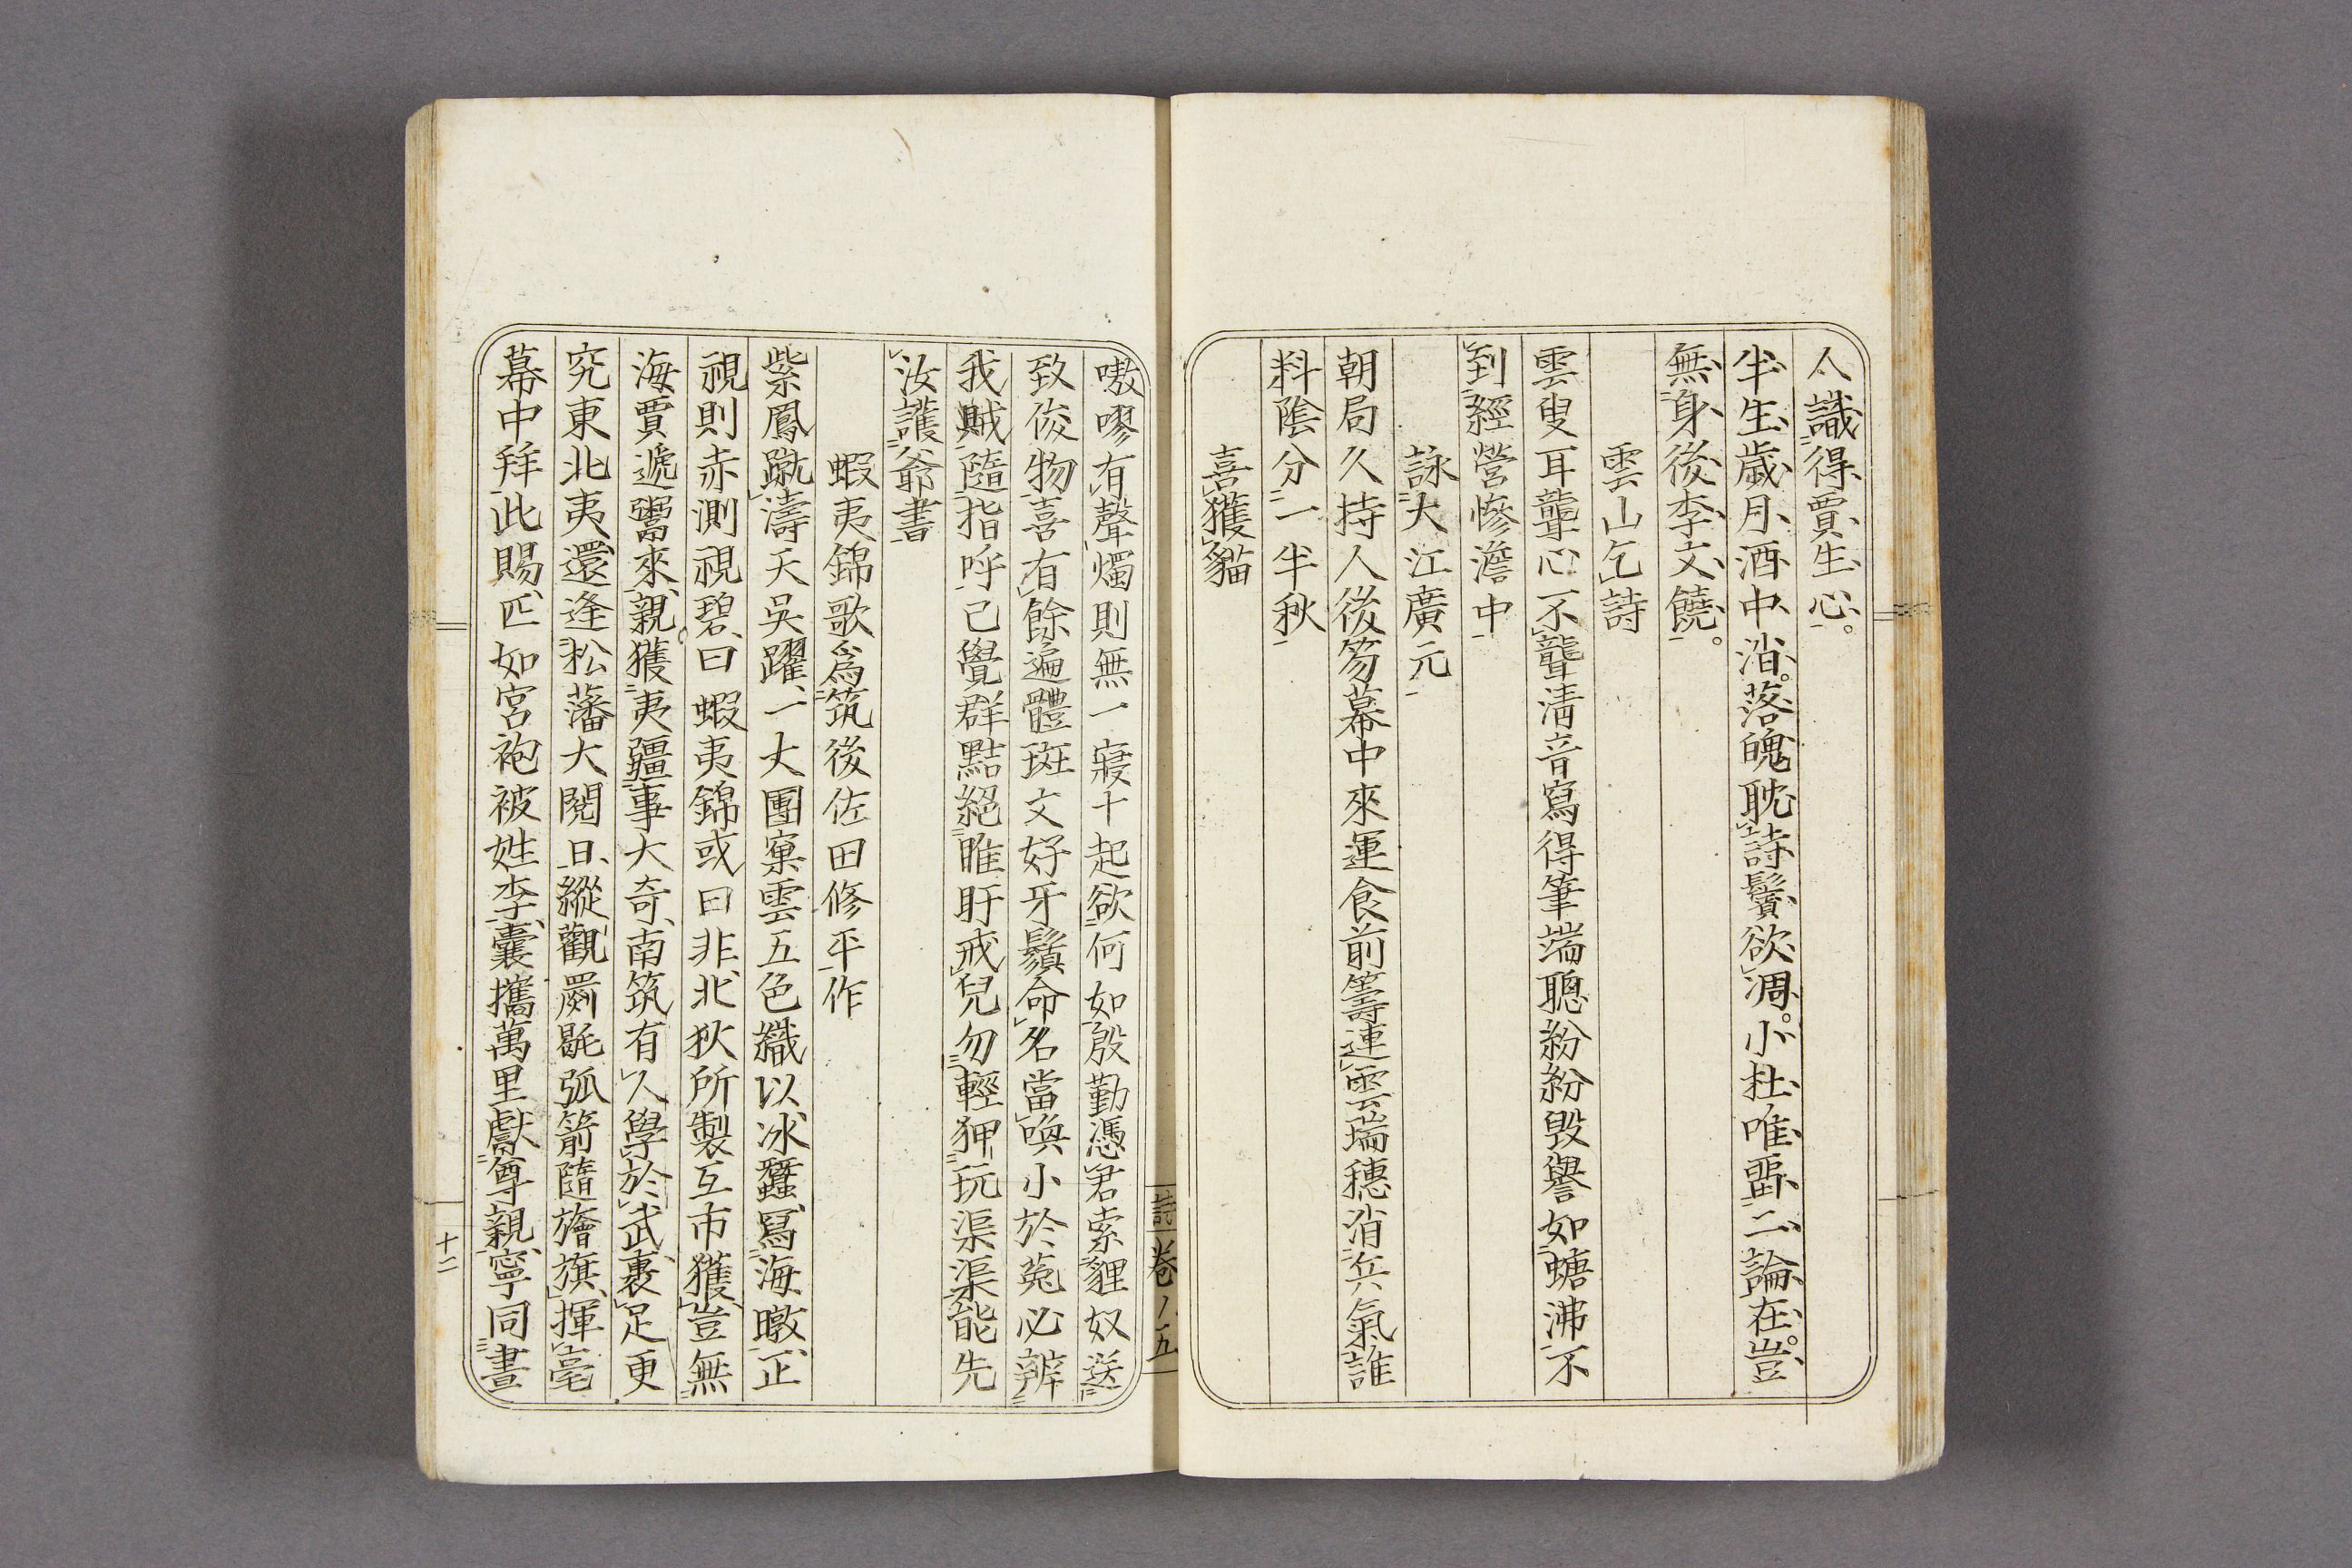 人識得賈生心。
半生歲月酒中消。落魄耽詩鬢欲凋。小杜唯留二論在。豈
無身後李文饒。
雲山乞詩
雲叟耳聾心不聾清音寫得筆端聰紛紛毀譽如螗沸不
到經營慘澹中
詠大江廣元
朝局久持人後笏幕中來運食前籌連雲瑞穗消兵氣誰
料陰分一半秋
喜獲貓
嗷嘐有聲燭則無一寢十起欲何如殷勤憑君索貍奴送
致俊物喜有餘遍體斑文好牙鬚命名當喚小於菟必辨
我賊隨指呼已覺群黠絕睢盱戒兒勿輕狎玩渠渠能先
汝護爺書
蝦夷錦歌爲筑後佐田修平作
紫鳳蹴濤天吳躍一丈團窠雲五色織以冰蠶寫海暾正
視則赤測視碧曰蝦夷錦或曰非北狄所製互市獲豈無
海賈遞鬻來親獲夷疆事大奇南筑有人學於武裹足更
究東北夷還逢松藩大閱日縱觀罽毾弧箭隨旝旗揮毫
幕中拜此賜匹如宮袍被姓李囊攜萬里獻尊親寧同晝
詩
卷ノ五
十二